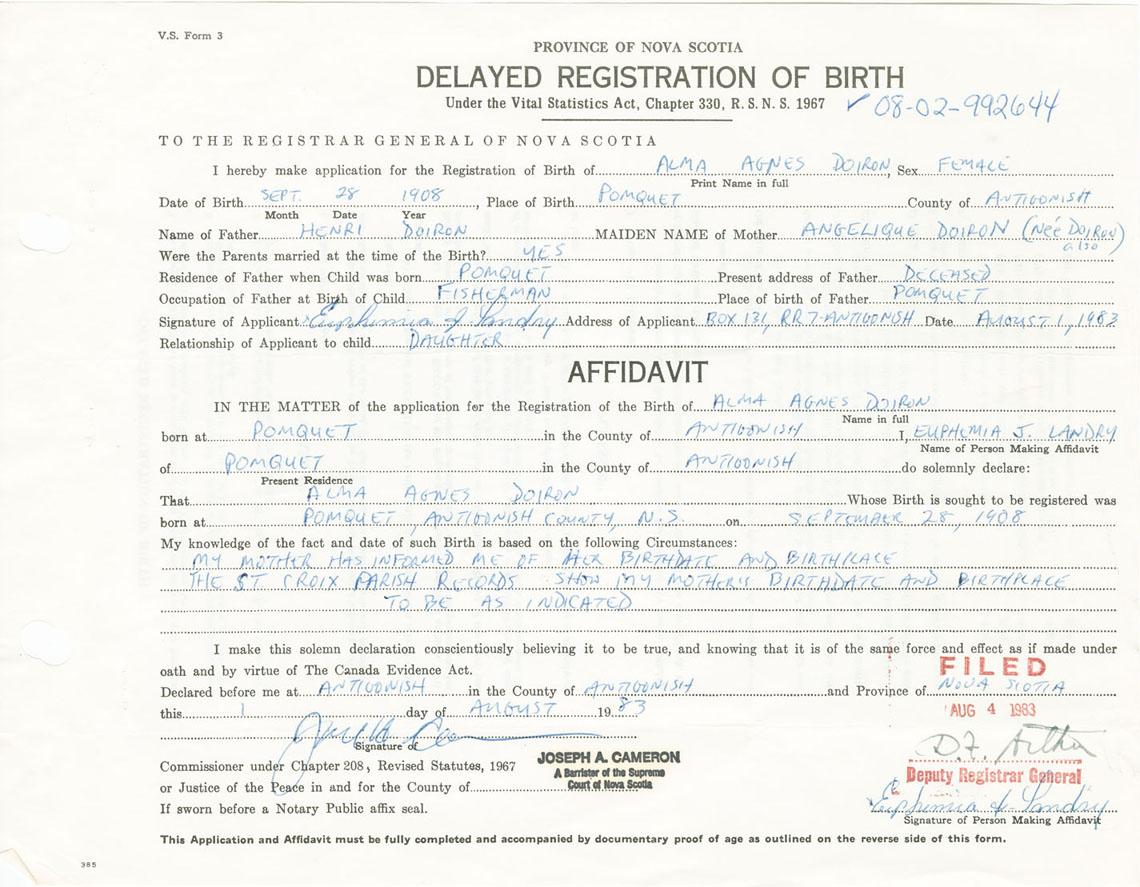 V.S. Form 3
PROVINCE OF NOVA SCOTIA
DELAYED REGISTRATION OF BIRTH
Under the Vital Statistics Act, Chapter 330, R. S. N. S. 1967 ✓ 08-02-992644
TO THE REGISTRAR GENERAL OF NOVA SCOTIA
I hereby make application for the Registration of Birth of ALMA AGNES DOIRON, Sex FEMALE
Print Name in full
Date of Birth SEPT. 28 1908, Place of Birth POMQUET County of ANTIGONISH
Month Date Year
Name of Father HENRI DOIRON MAIDEN NAME of Mother ANGELIQUE DOIRON (Neé DOIRON also)
Were the Parents married at the time of the Birth? YES
Residence of Father when Child was born POMQUET Present address of Father DECEASED
Occupation of Father at Birth of Child FISHERMAN Place of birth of Father POMQUET
Signature of Applicant Euphemia J. Landry Address of Applicant BOX 131, RR7-ANTIGONISH Date AUGUST 1, 1983
Relationship of Applicant to child DAUGHTER
AFFIDAVIT
IN THE MATTER of the application for the Registration of the Birth of ALMA AGNES DOIRON
Name in full
born at POMQUET in the County of ANTIGONISH I, EUPHEMIA J. LANDRY
Name of Person Making Affidavit
of POMQUET in the County of ANTIGONISH do solemnly declare:
Present Residence
That ALMA AGNES DOIRON Whose Birth is sought to be registered was
born at POMQUET, ANTIGONISH COUNTY, N.S. on SEPTEMBER 28, 1908
My knowledge of the fact and date of such Birth is based on the following Circumstances:
MY MOTHER HAS INFORMED ME OF HER BIRTHDATE AND BIRTHPLACE
THE ST CROIX PARISH RECORDS SHOW MY MOTHER'S BIRTHDATE AND BIRTHPLACE
TO BE AS INDICATED
I make this solemn declaration conscientiously believing it to be true, and knowing that it is of the same force and effect as if made under
oath and by virtue of The Canada Evidence Act.
FILED
Declared before me at ANTIGONISH in the County of ANTIGONISH and Province of NOVA SCOTIA
this 1 day of AUGUST 1983
AUG 4 1983
Signature of
D.F. Arthur
Commissioner under Chapter 208, Revised Statutes, 1967
JOSEPH A. CAMERON
A Barrister of the Supreme
Court of Nova Scotia
Deputy Registrar General
or Justice of the Peace in and for the County of
Euphemia J. Landry
If sworn before a Notary Public affix seal.
Signature of Person Making Affidavit
This Application and Affidavit must be fully completed and accompanied by documentary proof of age as outlined on the reverse side of this form.
385